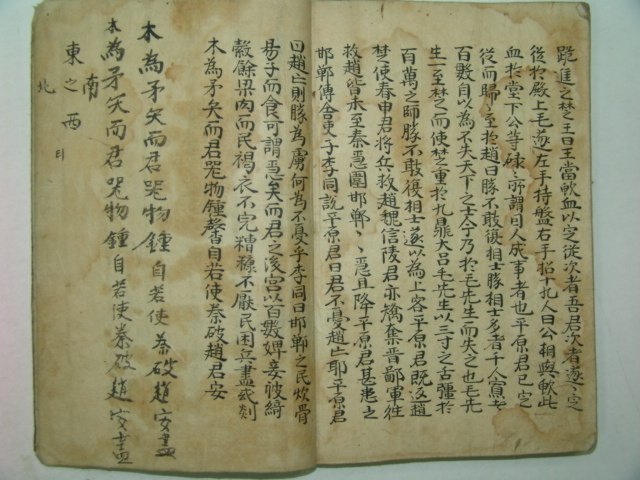 跪進之楚王曰王當歃血以定從次者吾君次者遂遂定
從於殿上毛遂左手持盤右手招十九人曰公相與歃此
血於堂下公等碌々所謂因人成事者也平原君已定
從而歸々至於趙曰勝不敢復相士勝相士多者千人寡者
百數自以為不失天下之士今乃於毛先生而失之也毛先
生一至楚之而使楚重於九鼎大呂毛先生以三寸之舌彊於
百萬之師勝不敢復相士遂以為上客平原君既返趙
楚使春申君將兵救趙魏信陵君亦矯奪晉鄙軍往
救趙皆未至秦急圍邯鄲々々急且降平原君甚患之
邯鄲傳舍吏子李同說平原君曰君不憂趙亡耶平原君
曰趙亡則勝為虜何為不憂乎李同曰邯鄲之民炊骨
易子而食可謂急矣而君之後宮以百數婢妾被綺
縠餘梁肉而民褐衣不完糟糠不厭民困兵盡或剡
木為矛矢而君器物鍾磬自若使秦破趙君安
木為矛矢而君器物鍾自若使秦破趙安盡
木為矛矢而君器物鍾自若使秦破趙安盡
東之西
南
北